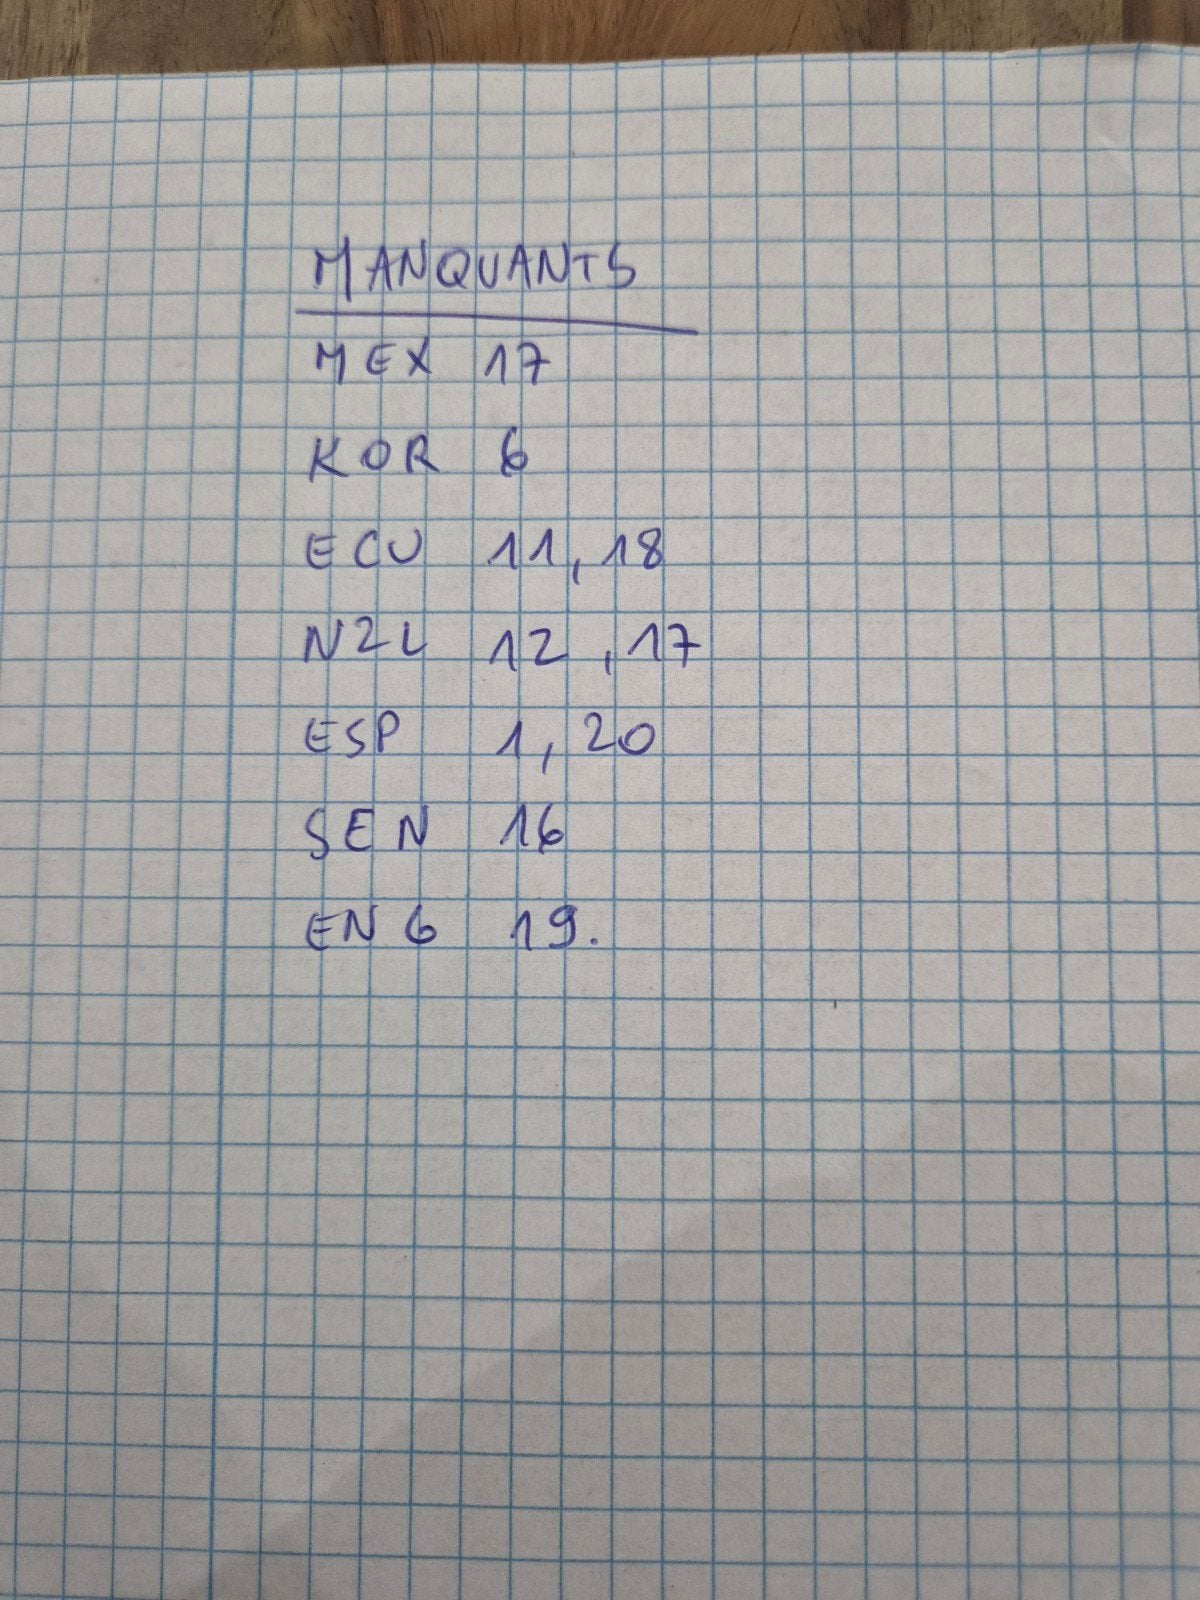 MANQUANTS
MEX 17
KOR 6
ECU 11, 18
NZL 12, 17
ESP 1, 20
SEN 16
ENG 19.